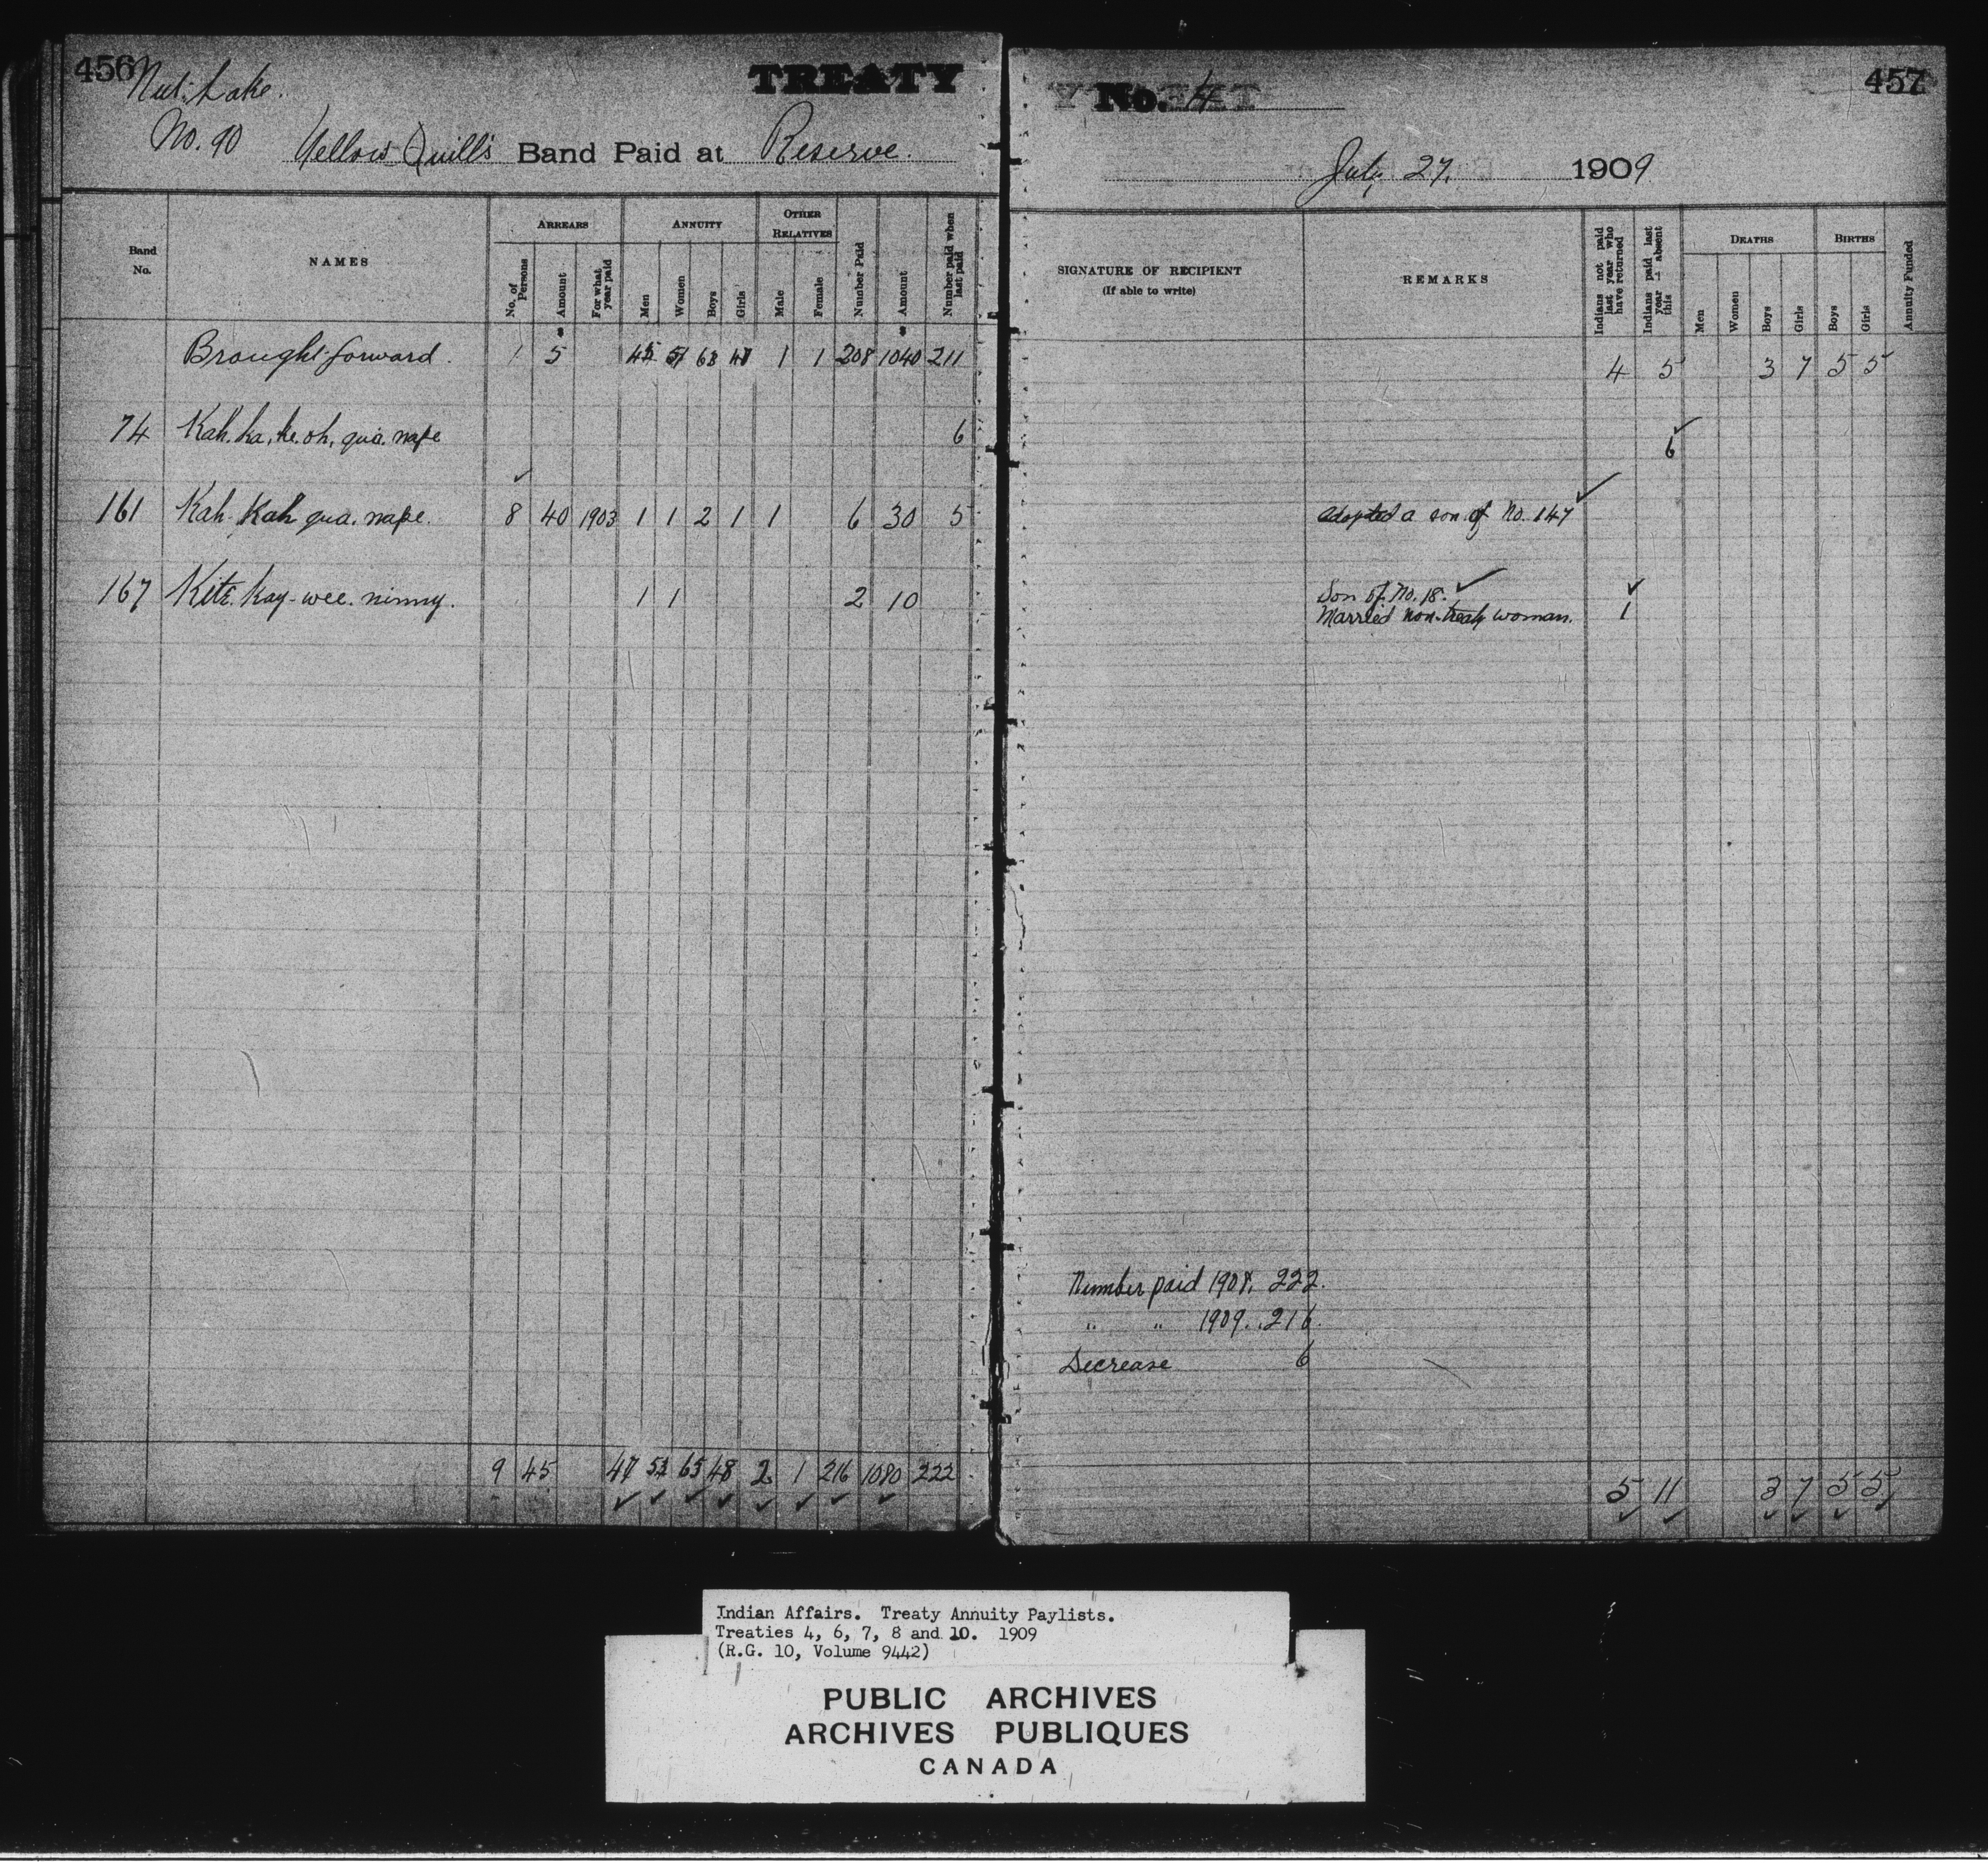 456 TREATY
Nut Lake.
No. 90 Yellow Quill's Band Paid at Reserve.
Band No. NAMES ARREARS ANNUITY OTHER RELATIVES Number Paid Amount Number paid when last paid
No. of Persons Amount For what year paid Men Women Boys Girls Male Female
Brought forward. 1 5 1 1 208 1040 211
74 6
161 Kah. Kah qua. nape. 8 40 1903 1 1 2 1 1 6 30 5
167 Kay-wee. ninny. 1 1 2 10
9 45 65 48 2 1 216 1080 222
No. 4 457
July 27. 1909
SIGNATURE OF RECIPIENT (If able to write) REMARKS Indians not paid last year who have returned Indians paid last year — absent this DEATHS BIRTHS Annuity Funded
Men Women Boys Girls Boys Girls
4 5 3 7 5 5
6
adopted a son of No. 147
Son of No. 18.
Married non-treaty woman. 1
Number paid 1908. 222.
" " 1909. 216.
Decrease 6
5 11 3 7 5 5
Indian Affairs. Treaty Annuity Paylists.
Treaties 4, 6, 7, 8 and 10. 1909
(R.G. 10, Volume 9442)
PUBLIC ARCHIVES
ARCHIVES PUBLIQUES
CANADA